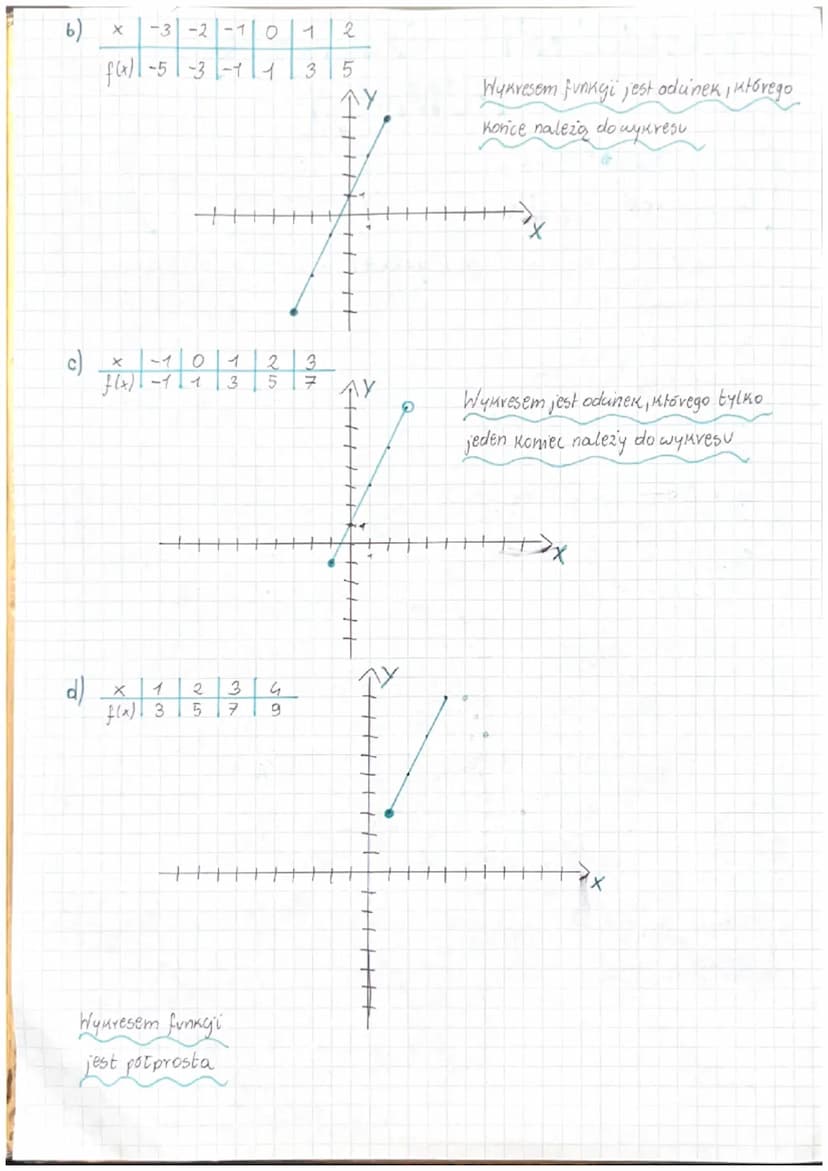 b) x | -3 | -2 | -1 | 0 | 1 | 2
f(x) | -5 | -3 | -1 | 1 | 3 | 5
Wykresem funkcji jest odcinek, którego
końce należą do wykresu
Y
1
1
X
c) x | -1 | 0 | 1 | 2 | 3
f(x) | -1 | 1 | 3 | 5 | 7
Wykresem jest odcinek, którego tylko
jeden koniec należy do wykresu
Y
1
1
X
d) x | 1 | 2 | 3 | 4
f(x) | 3 | 5 | 7 | 9
Y
X
Wykresem funkcji
jest półprosta